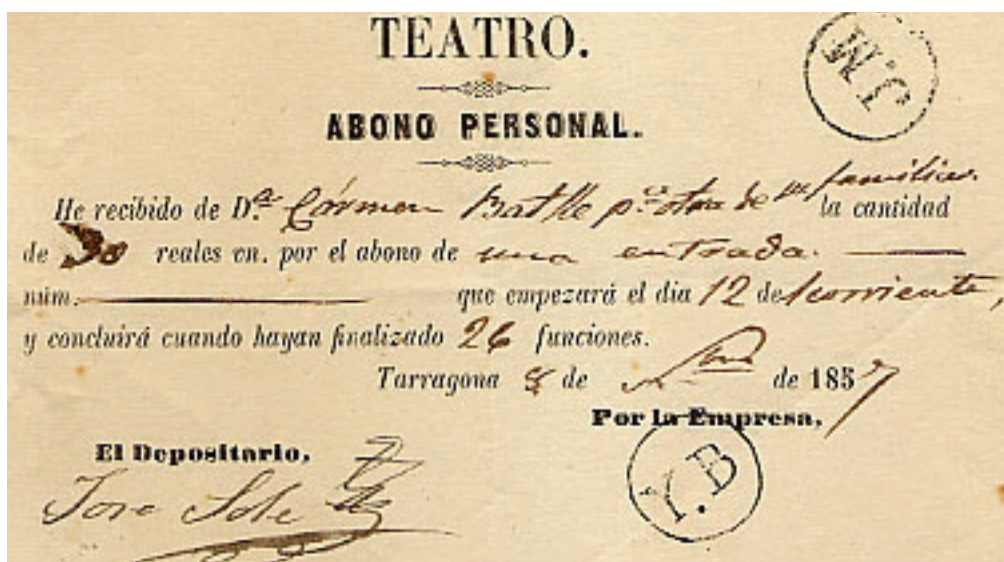 TEATRO.
J.M
ABONO PERSONAL.
He recibido de D.ª Cármen Batlle p.ª otra de su familia. la cantidad
de 30 reales vn. por el abono de una entrada.
núm. que empezará el dia 12 del corriente,
y concluirá cuando hayan finalizado 26 funciones.
Tarragona 8 de de 1857
Por la Empresa,
El Depositario,
Y.B
Jose Sole